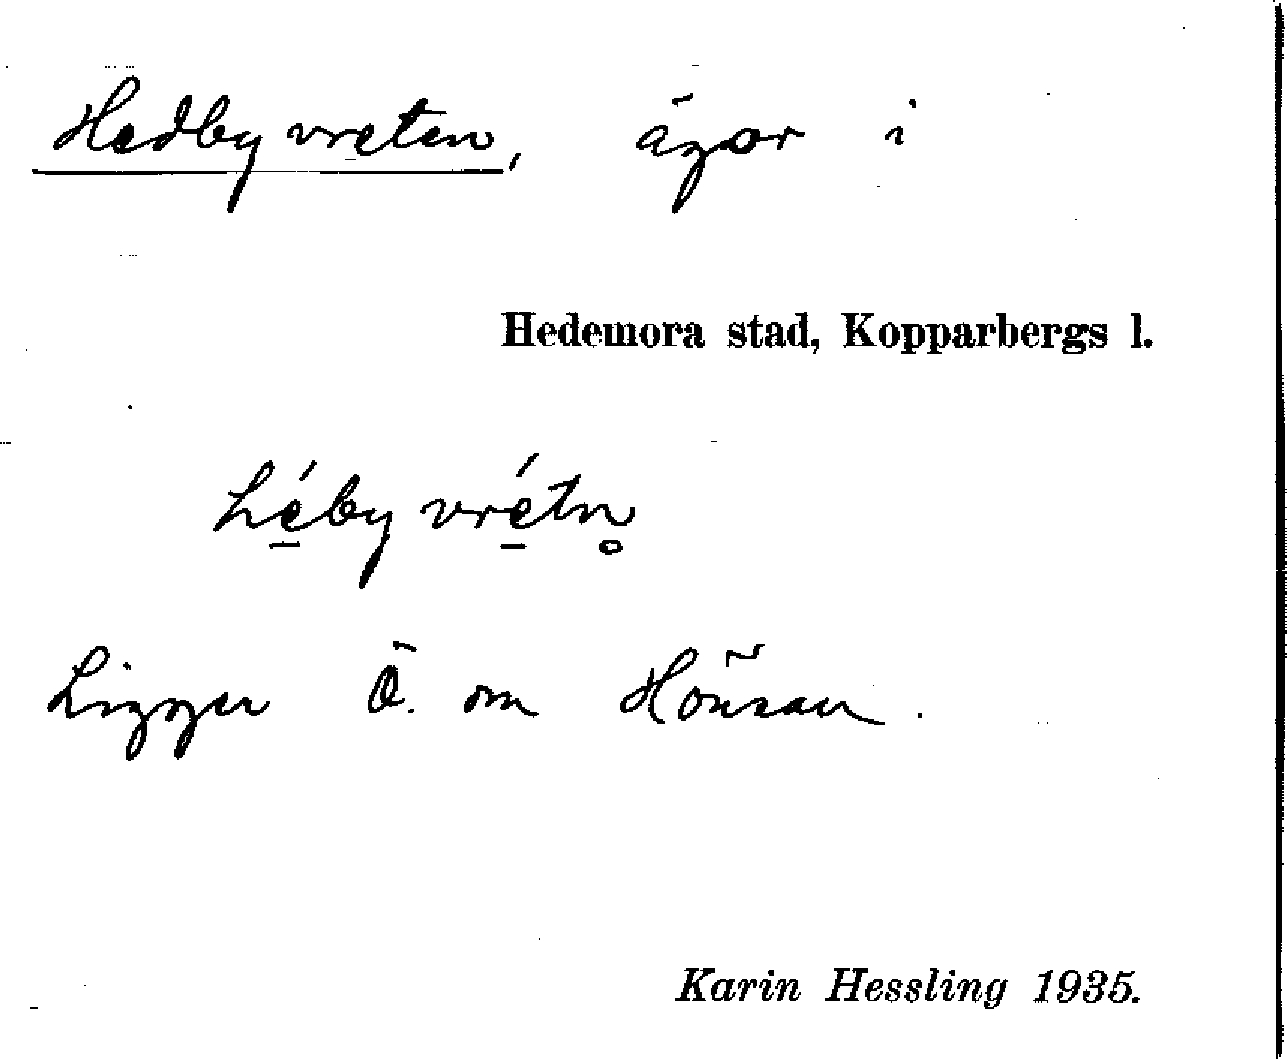 Hedbyvreten, ägor i
Hedemora stad, Kopparbergs l.
héby vrétn̥
Ligger Ö. om Hönsan.
Karin Hessling 1935.